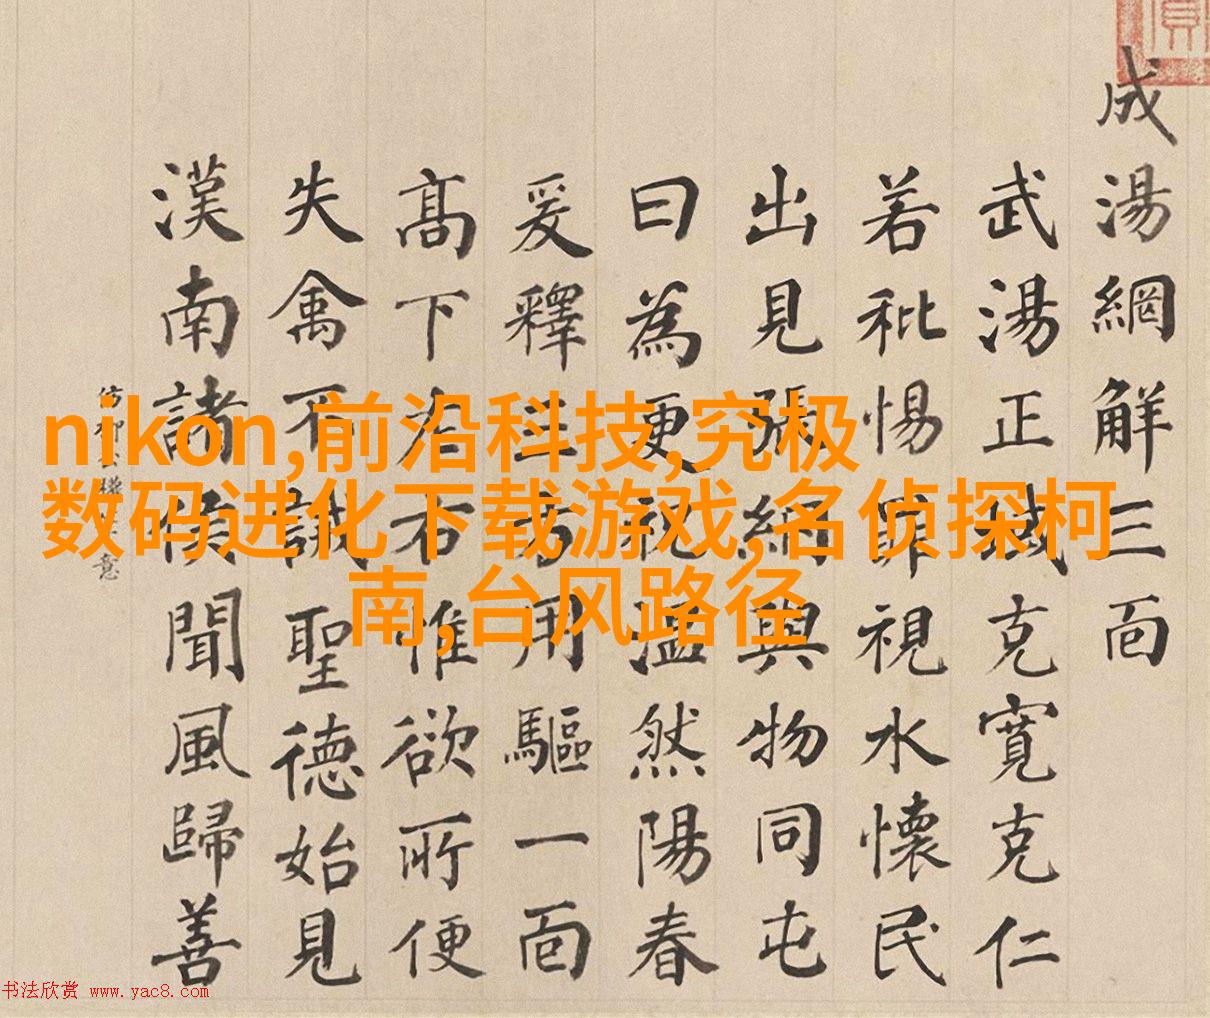 成湯網解三面
武湯正域克寬克仁
若秕惕視水懷民
出見張網與物同屯
曰為更祝溫然陽春
爰釋三方用驅一面
高下左右惟欲所便
失禽不識聖德始見
漢南諸侯聞風歸善
nikon,前沿科技,究极
数码进化下载游戏,名侦探柯
南,台风路径
书法欣赏 www.yac8.com